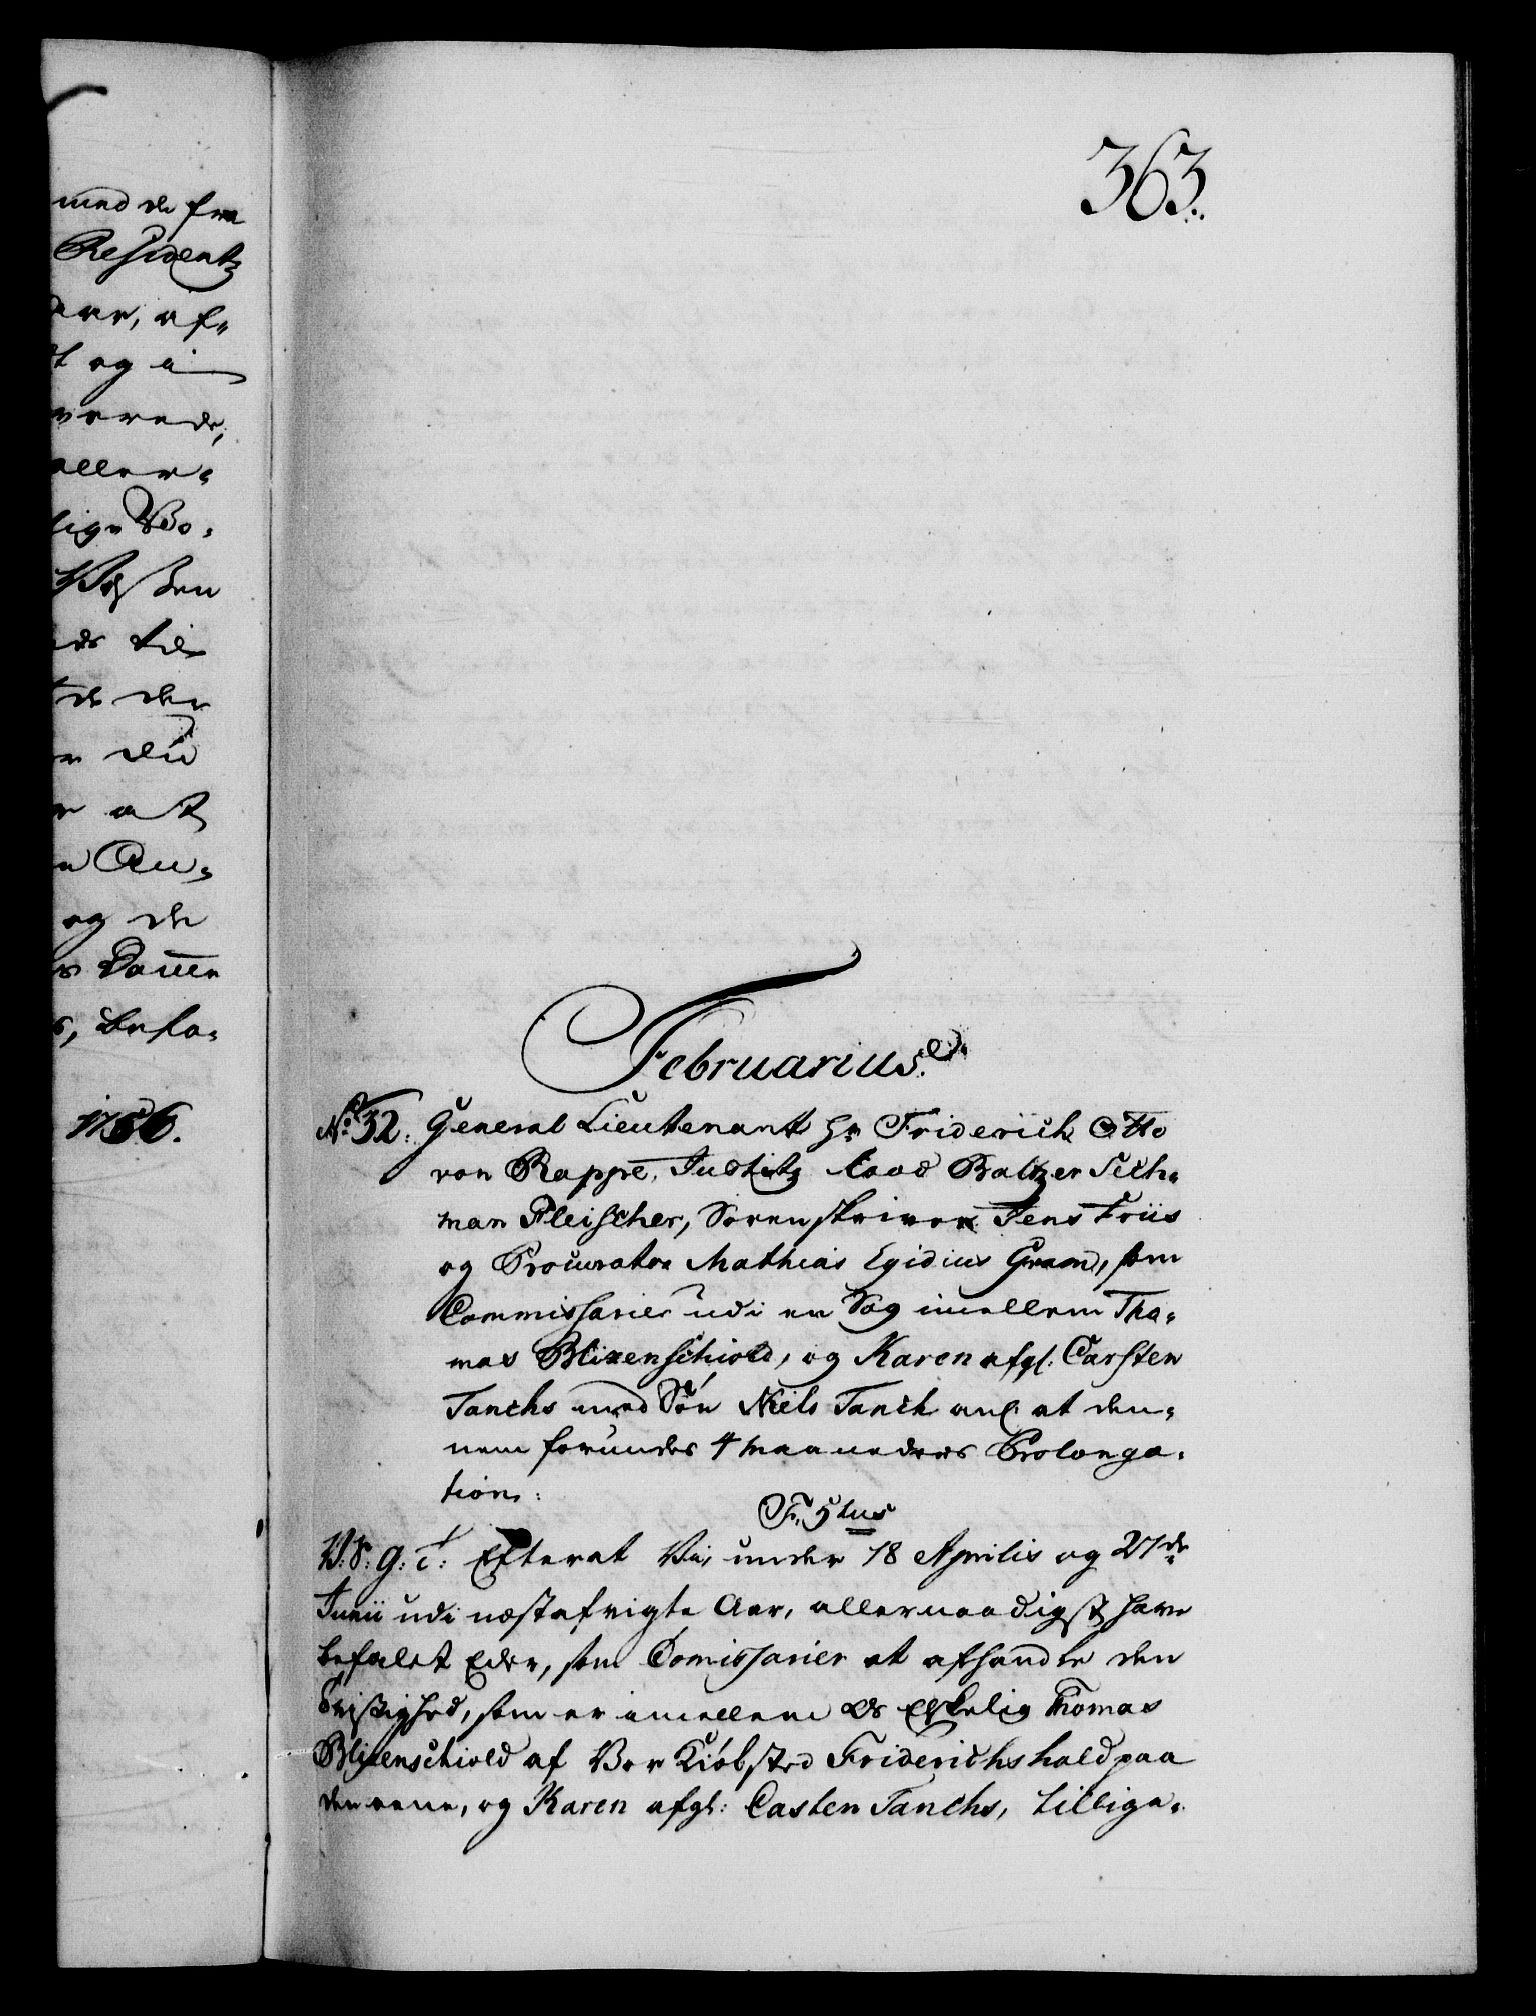 med de fra
Residentz
aar, af-
t og i
verede,
aller-
lige Bo-
sen
til
de den
Du
at
An-
og de
Dame
, befa-
1756.
363.
Februarius.
No. 32. General Lieutenant Hr Friderich Otto
von Rappe, Justitz Raad Baltzer Sech-
man Fleischer, Sorenskriver Jens Friis
og Procurator Mathias Egidius Gram, som
Commissarier udi en Sag imellem Tho-
mas Blixenschiold, og Karen afgl. Carsten
Tanchs med Søn Niels Tanch anl. at den-
nem forundes 4 maaneders Prolonga-
tion.
F. 5tus
V.S.G.T. Efterat Vi, under 18 Aprilis og 27de
Junii udi næstafvigte Aar, allernaadigst have
befalet Eder, som Comissarier at afhandle den
Tvistighed, som er imellem Os Elskelig Thomas
Blixenschiold af Vor Kiøbsted Friderichshald paa
den eene, og Karen afgl: Casten Tanchs, tillige-